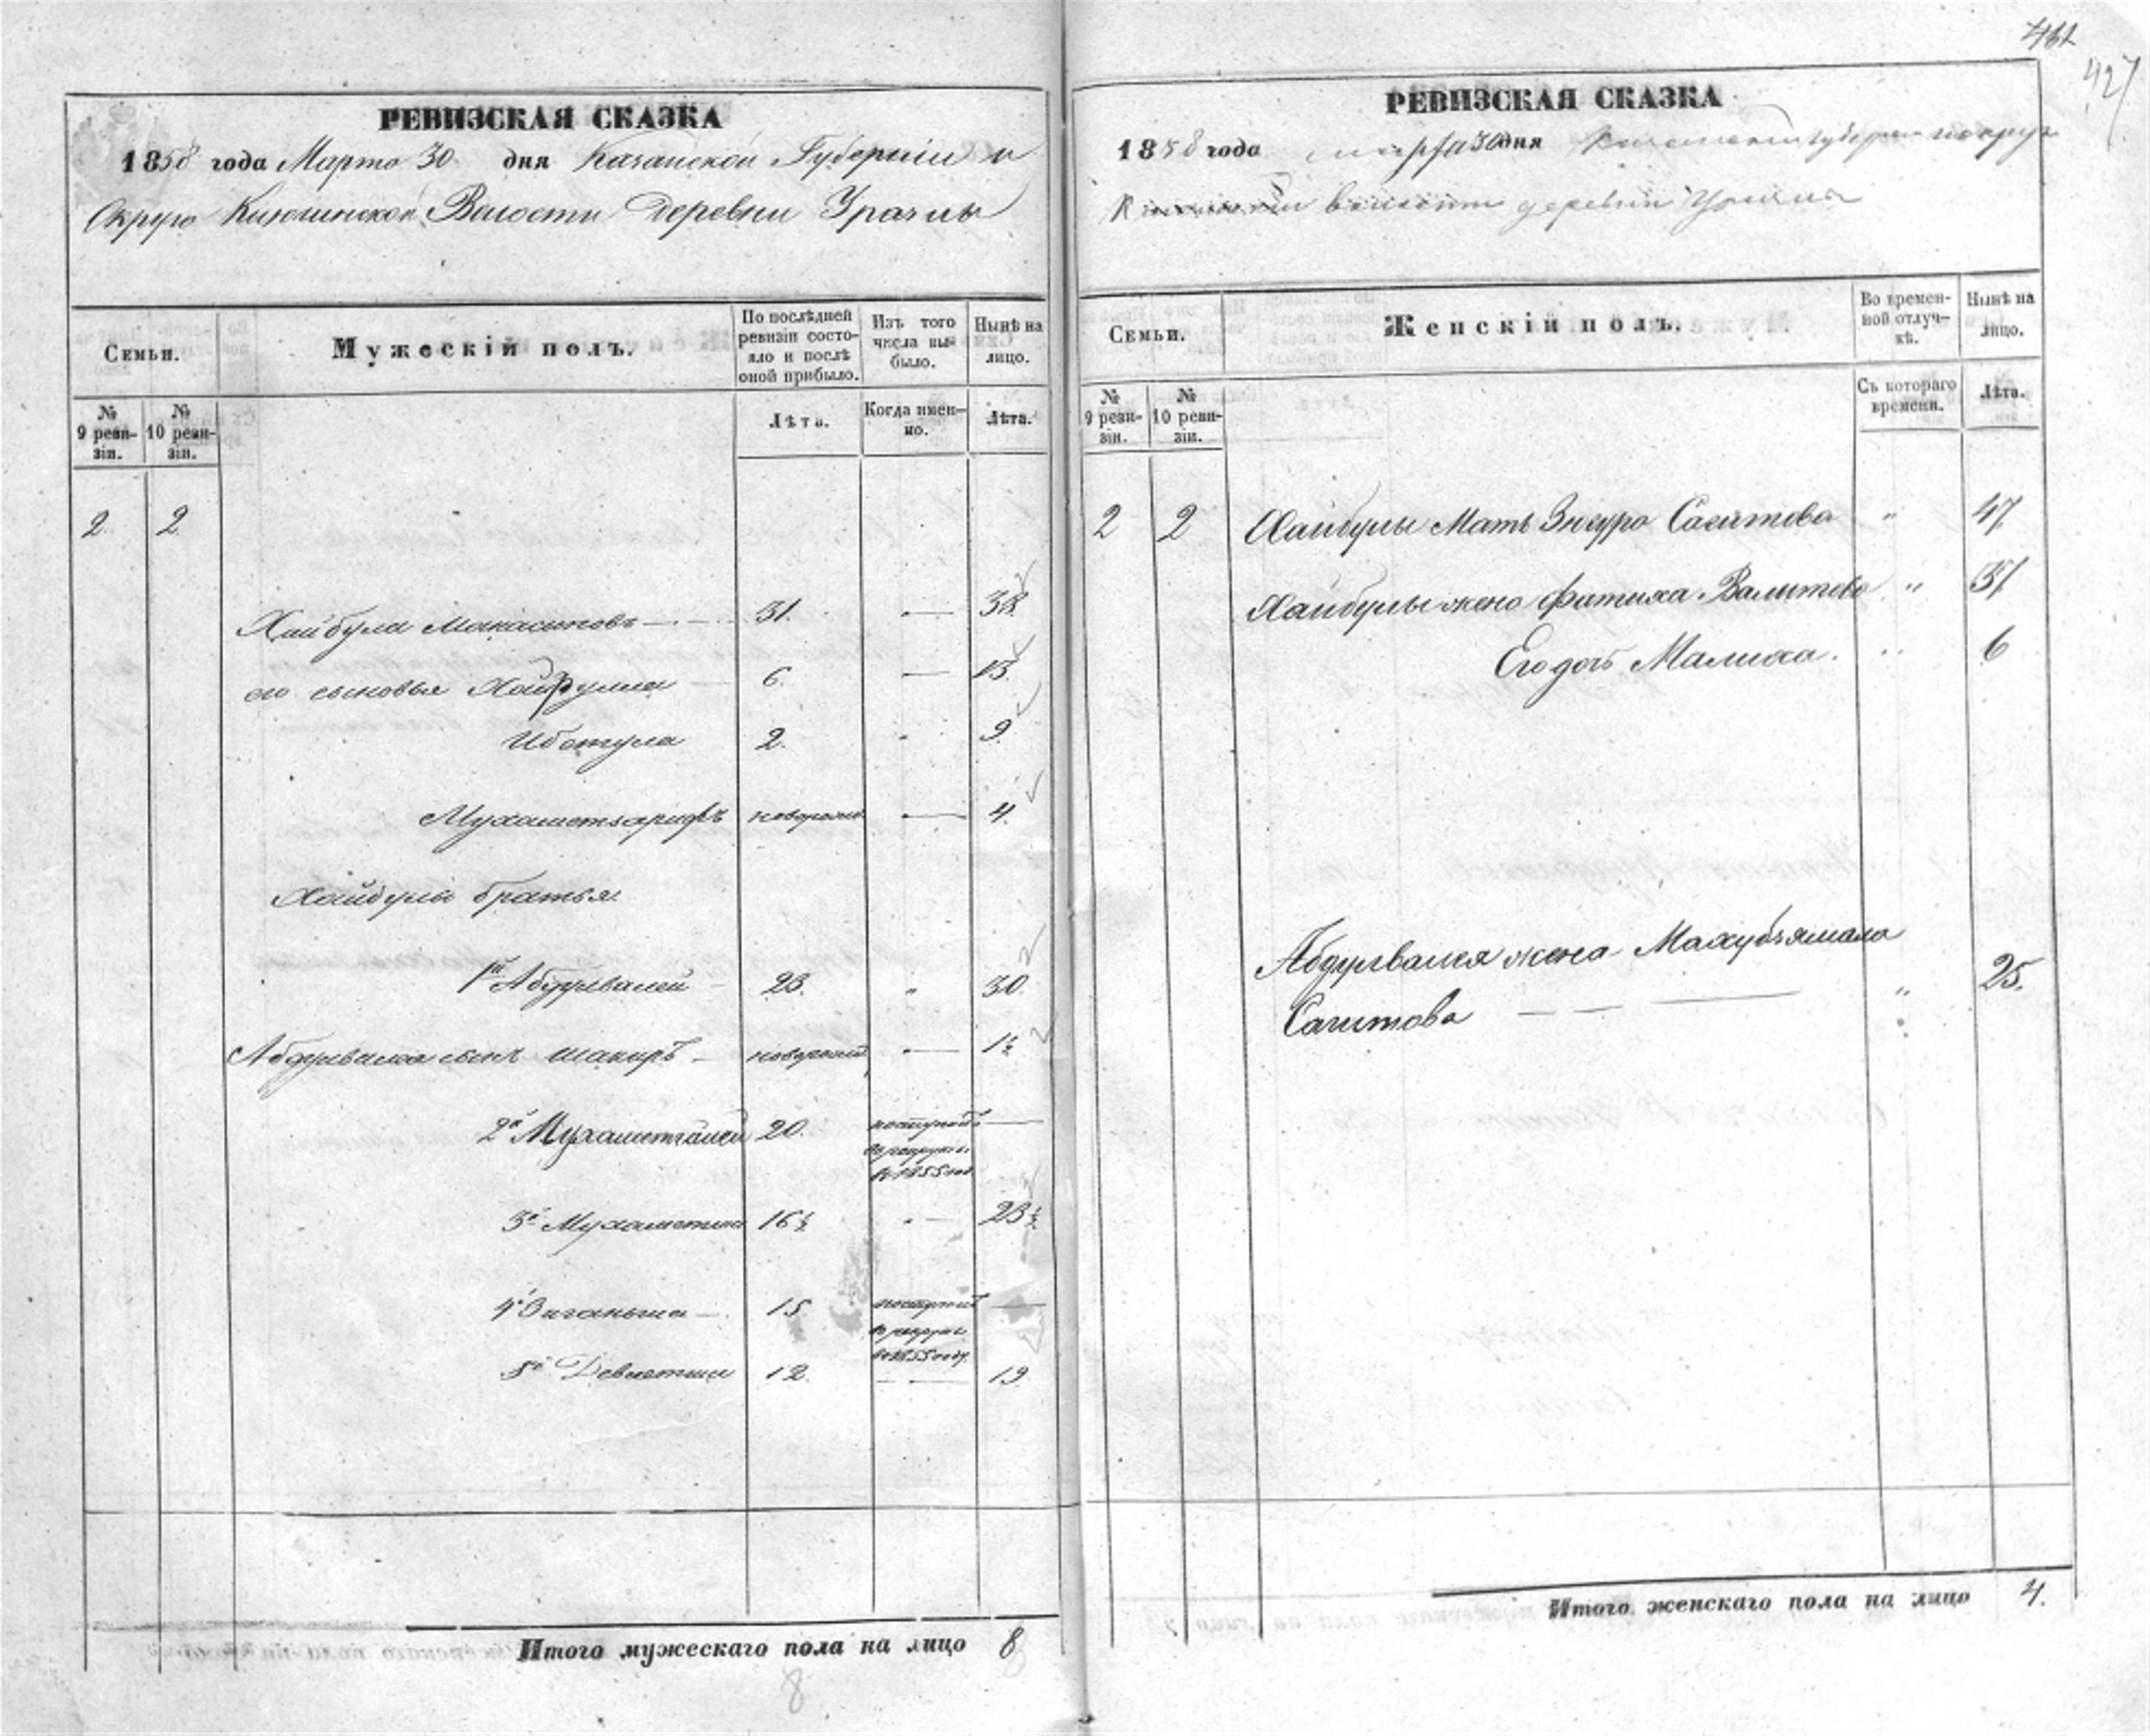 462
427
РЕВИЗСКАЯ СКАЗКА
1858 года Марта 30 дня Казанской Губернии и
Округа Кисминской Волости деревни Урачи
Семьи.
Мужескій полъ.
По послѣдней ревизіи состояло и послѣ оной прибыло.
Изъ того числа выбыло.
Нынѣ на лицо.
№ 9 ревизіи.
№ 10 ревизіи.
Лѣта.
Когда именно.
Лѣта.
2 2
Хайбула Макасыповъ 31. — 38
его сыновья Хайрулла 6. — 13
Ибетула 2. 9
Мухаметзарифъ новорож 4
Хайбулы братья
1й Абдулвалей 23. " 30
Абдулвалея сынъ Шакиръ новорожд — 1½
2й Мухаметгалей 20. поступилъ въ рекруты въ 1855 год —
3й Мухаметша 16½ " 23½
4й Зиганьша 15. поступилъ въ рекруты въ 1855 году —
5й Девлетша 12. — 19
Итого мужескаго пола на лицо 8
8
РЕВИЗСКАЯ СКАЗКА
1858 года марта 30 дня Казанской губернии и округа
волости деревни Урачи
Семьи.
Женскій полъ.
Во временной отлучкѣ.
Нынѣ на лицо.
№ 9 ревизіи.
№ 10 ревизіи.
Съ котораго времени.
Лѣта.
2 2 Хайбулы Мать Зюгура Сагитова " 47
Хайбулы жена Фатиха Валитова " 37
Его дочь Малиха. " 6
Абдулвалея жена Махубзямала
Сагитова — — " 25.
Итого женскаго пола на лицо 4.